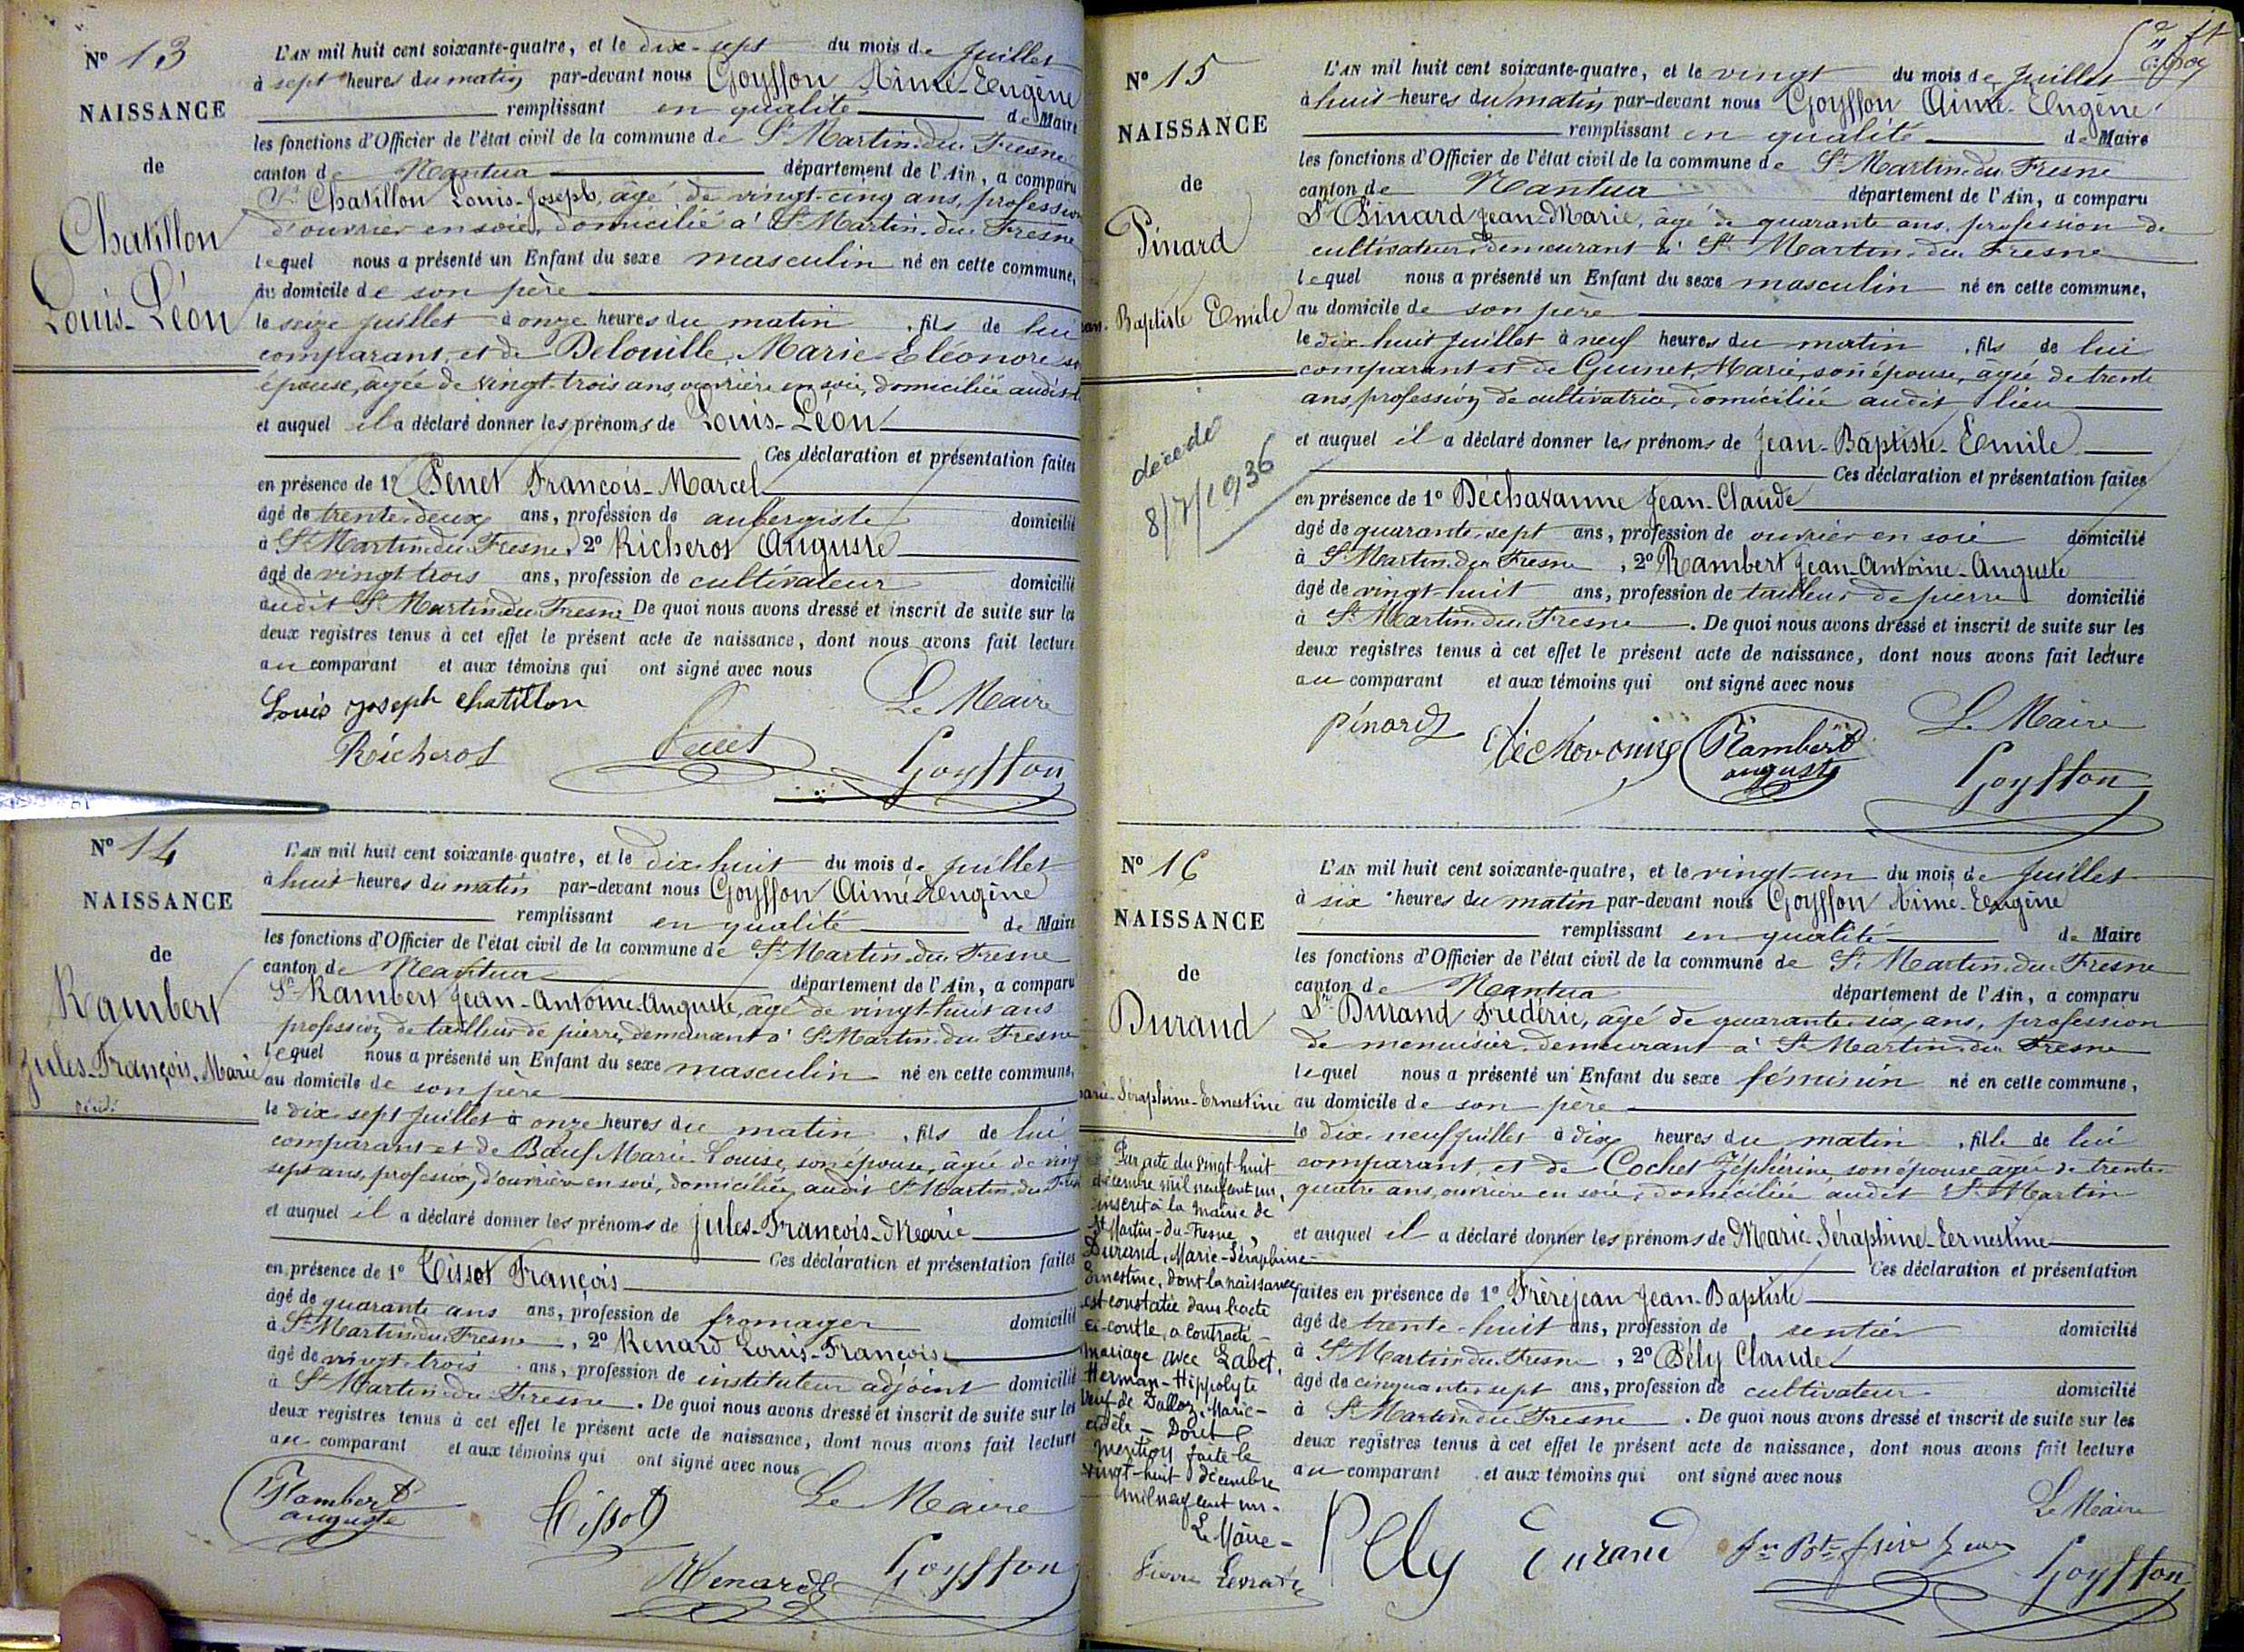 N° 13
NAISSANCE
de
Chatillon
Louis-Léon
L'AN mil huit cent soixante-quatre, et le dix-sept du mois de juillet
à sept heures du matin par-devant nous Goyffon Aimé-Eugène
remplissant en qualité de Maire
les fonctions d'Officier de l'état civil de la commune de St Martin-du-Fresne
canton de Nantua département de l'Ain, a comparu
Sr Chatillon Louis-Joseph, âgé de vingt-cinq ans, profession
d'ouvrier en soie, domicilié à St Martin-du-Fresne
lequel nous a présenté un Enfant du sexe masculin né en cette commune,
au domicile de son père
le seize juillet à onze heures du matin, fils de lui
comparant, et de Delouille, Marie-Eléonore sa
épouse, âgée de vingt-trois ans, ouvrière en soie, domiciliée audit
et auquel il a déclaré donner les prénoms de Louis-Léon
Ces déclaration et présentation faites
en présence de 1° Penet François-Marcel
âgé de trente-deux ans, profession de aubergiste domicilié
à St Martin-du-Fresne, 2° Richerot Auguste
âgé de vingt trois ans, profession de cultivateur domicilié
audit St Martin-du-Fresne De quoi nous avons dressé et inscrit de suite sur les
deux registres tenus à cet effet le présent acte de naissance, dont nous avons fait lecture
au comparant et aux témoins qui ont signé avec nous
Louis joseph chatillon
Le Maire
Richerot Penet Goyffon
N° 14
NAISSANCE
de
Rambert
Jules-François-Marie
L'AN mil huit cent soixante-quatre, et le dix huit du mois de juillet
à huit heures du matin par-devant nous Goyffon Aimé Eugène
remplissant en qualité de Maire
les fonctions d'Officier de l'état civil de la commune de St Martin-du-Fresne
canton de Nantua département de l'Ain, a comparu
Sr Rambert Jean-Antoine-Auguste, âgé de vingt-huit ans
profession de tailleur de pierre, demeurant à St Martin-du-Fresne
lequel nous a présenté un Enfant du sexe masculin né en cette commune,
au domicile de son père
le dix-sept juillet à onze heures du matin, fils de lui
comparant et de Bœuf Marie-Louise, son épouse, âgée de vingt
sept ans, profession d'ouvrière en soie, domiciliée audit St Martin-du-Fresne
et auquel il a déclaré donner les prénoms de Jules-François-Marie
Ces déclaration et présentation faites
en présence de 1° Tissot François
âgé de quarante ans ans, profession de fromager domicilié
à St Martin-du-Fresne, 2° Renard Louis-François
âgé de vingt-trois ans, profession de instituteur adjoint domicilié
à St Martin-du-Fresne. De quoi nous avons dressé et inscrit de suite sur les
deux registres tenus à cet effet le présent acte de naissance, dont nous avons fait lecture
au comparant et aux témoins qui ont signé avec nous
Rambert
auguste
Tissot
Le Maire
Renard Goyffon
N° 15
NAISSANCE
de
Pinard
Baptiste Emile
décédé
8/7/1936
L'AN mil huit cent soixante-quatre, et le vingt du mois de juillet
à huit heures du matin par-devant nous Goyffon Aimé-Eugène
remplissant en qualité de Maire
les fonctions d'Officier de l'état civil de la commune de St Martin-du-Fresne
canton de Nantua département de l'Ain, a comparu
Sr Pinard Jean-Marie, âgé de quarante ans, profession de
cultivateur, demeurant à St Martin-du-Fresne
lequel nous a présenté un Enfant du sexe masculin né en cette commune,
au domicile de son père
le dix-huit juillet à neuf heures du matin, fils de lui
comparant et de Guinet, Marie, son épouse, âgée de trente
ans, profession de cultivatrice, domiciliée audit lieu
et auquel il a déclaré donner les prénoms de Jean-Baptiste-Emile
Ces déclaration et présentation faites
en présence de 1° Déchavanne Jean-Claude
âgé de quarante-sept ans, profession de ouvrier en soie domicilié
à St Martin-du-Fresne, 2° Rambert Jean-Antoine-Auguste
âgé de vingt-huit ans, profession de tailleur de pierre domicilié
à St Martin-du-Fresne. De quoi nous avons dressé et inscrit de suite sur les
deux registres tenus à cet effet le présent acte de naissance, dont nous avons fait lecture
au comparant et aux témoins qui ont signé avec nous
Le Maire
Pinard Déchavanne Rambert
auguste
Goyffon
N° 16
NAISSANCE
de
Durand
Marie-Séraphine-Ernestine
Par acte du vingt-huit
décembre mil neuf cent un,
inscrit à la mairie de
St Martin-du-Fresne,
Durand, Marie-Séraphine-
Ernestine, dont la naissance
est constatée dans l'acte
ci-contre, a contracté
mariage avec Labet,
Herman-Hippolyte
veuf de Dalloz, Marie-
Adèle - Doret
mention faite le
vingt-huit décembre
mil neuf cent un.
Le Maire
L'AN mil huit cent soixante-quatre, et le vingt-un du mois de juillet
à six heures du matin par-devant nous Goyffon Aimé-Eugène
remplissant en qualité de Maire
les fonctions d'Officier de l'état civil de la commune de St Martin-du-Fresne
canton de Nantua département de l'Ain, a comparu
Sr Durand Frédéric, âgé de quarante-six ans, profession
de menuisier, demeurant à St Martin-du-Fresne
lequel nous a présenté un Enfant du sexe féminin né en cette commune,
au domicile de son père
le dix-neuf juillet à dix heures du matin, fille de lui
comparant, et de Cochet Zéphirine, son épouse âgée de trente-
quatre ans, ouvrière en soie, domiciliée audit St Martin
et auquel il a déclaré donner les prénoms de Marie-Séraphine-Ernestine
Ces déclaration et présentation
faites en présence de 1° Frèrejean Jean-Baptiste
âgé de trente-huit ans, profession de rentier domicilié
à St Martin-du-Fresne, 2° Pély Claude
âgé de cinquante-sept ans, profession de cultivateur domicilié
à St Martin-du-Fresne. De quoi nous avons dressé et inscrit de suite sur les
deux registres tenus à cet effet le présent acte de naissance, dont nous avons fait lecture
au comparant et aux témoins qui ont signé avec nous
Le Maire
Pely Durand Jn Bte frère Jean Goyffon